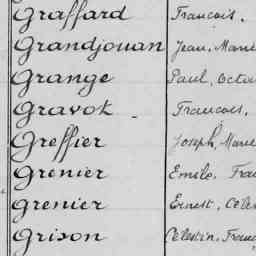 Graffard Francois.
Grandjouan Jean, Marie
Grange Paul, Octa
Gravot - Francois,
Greffier Joseph, Marie
Grenier Emile, Fran
Grenier Ernest, Céle
Grison Célestin, Franç